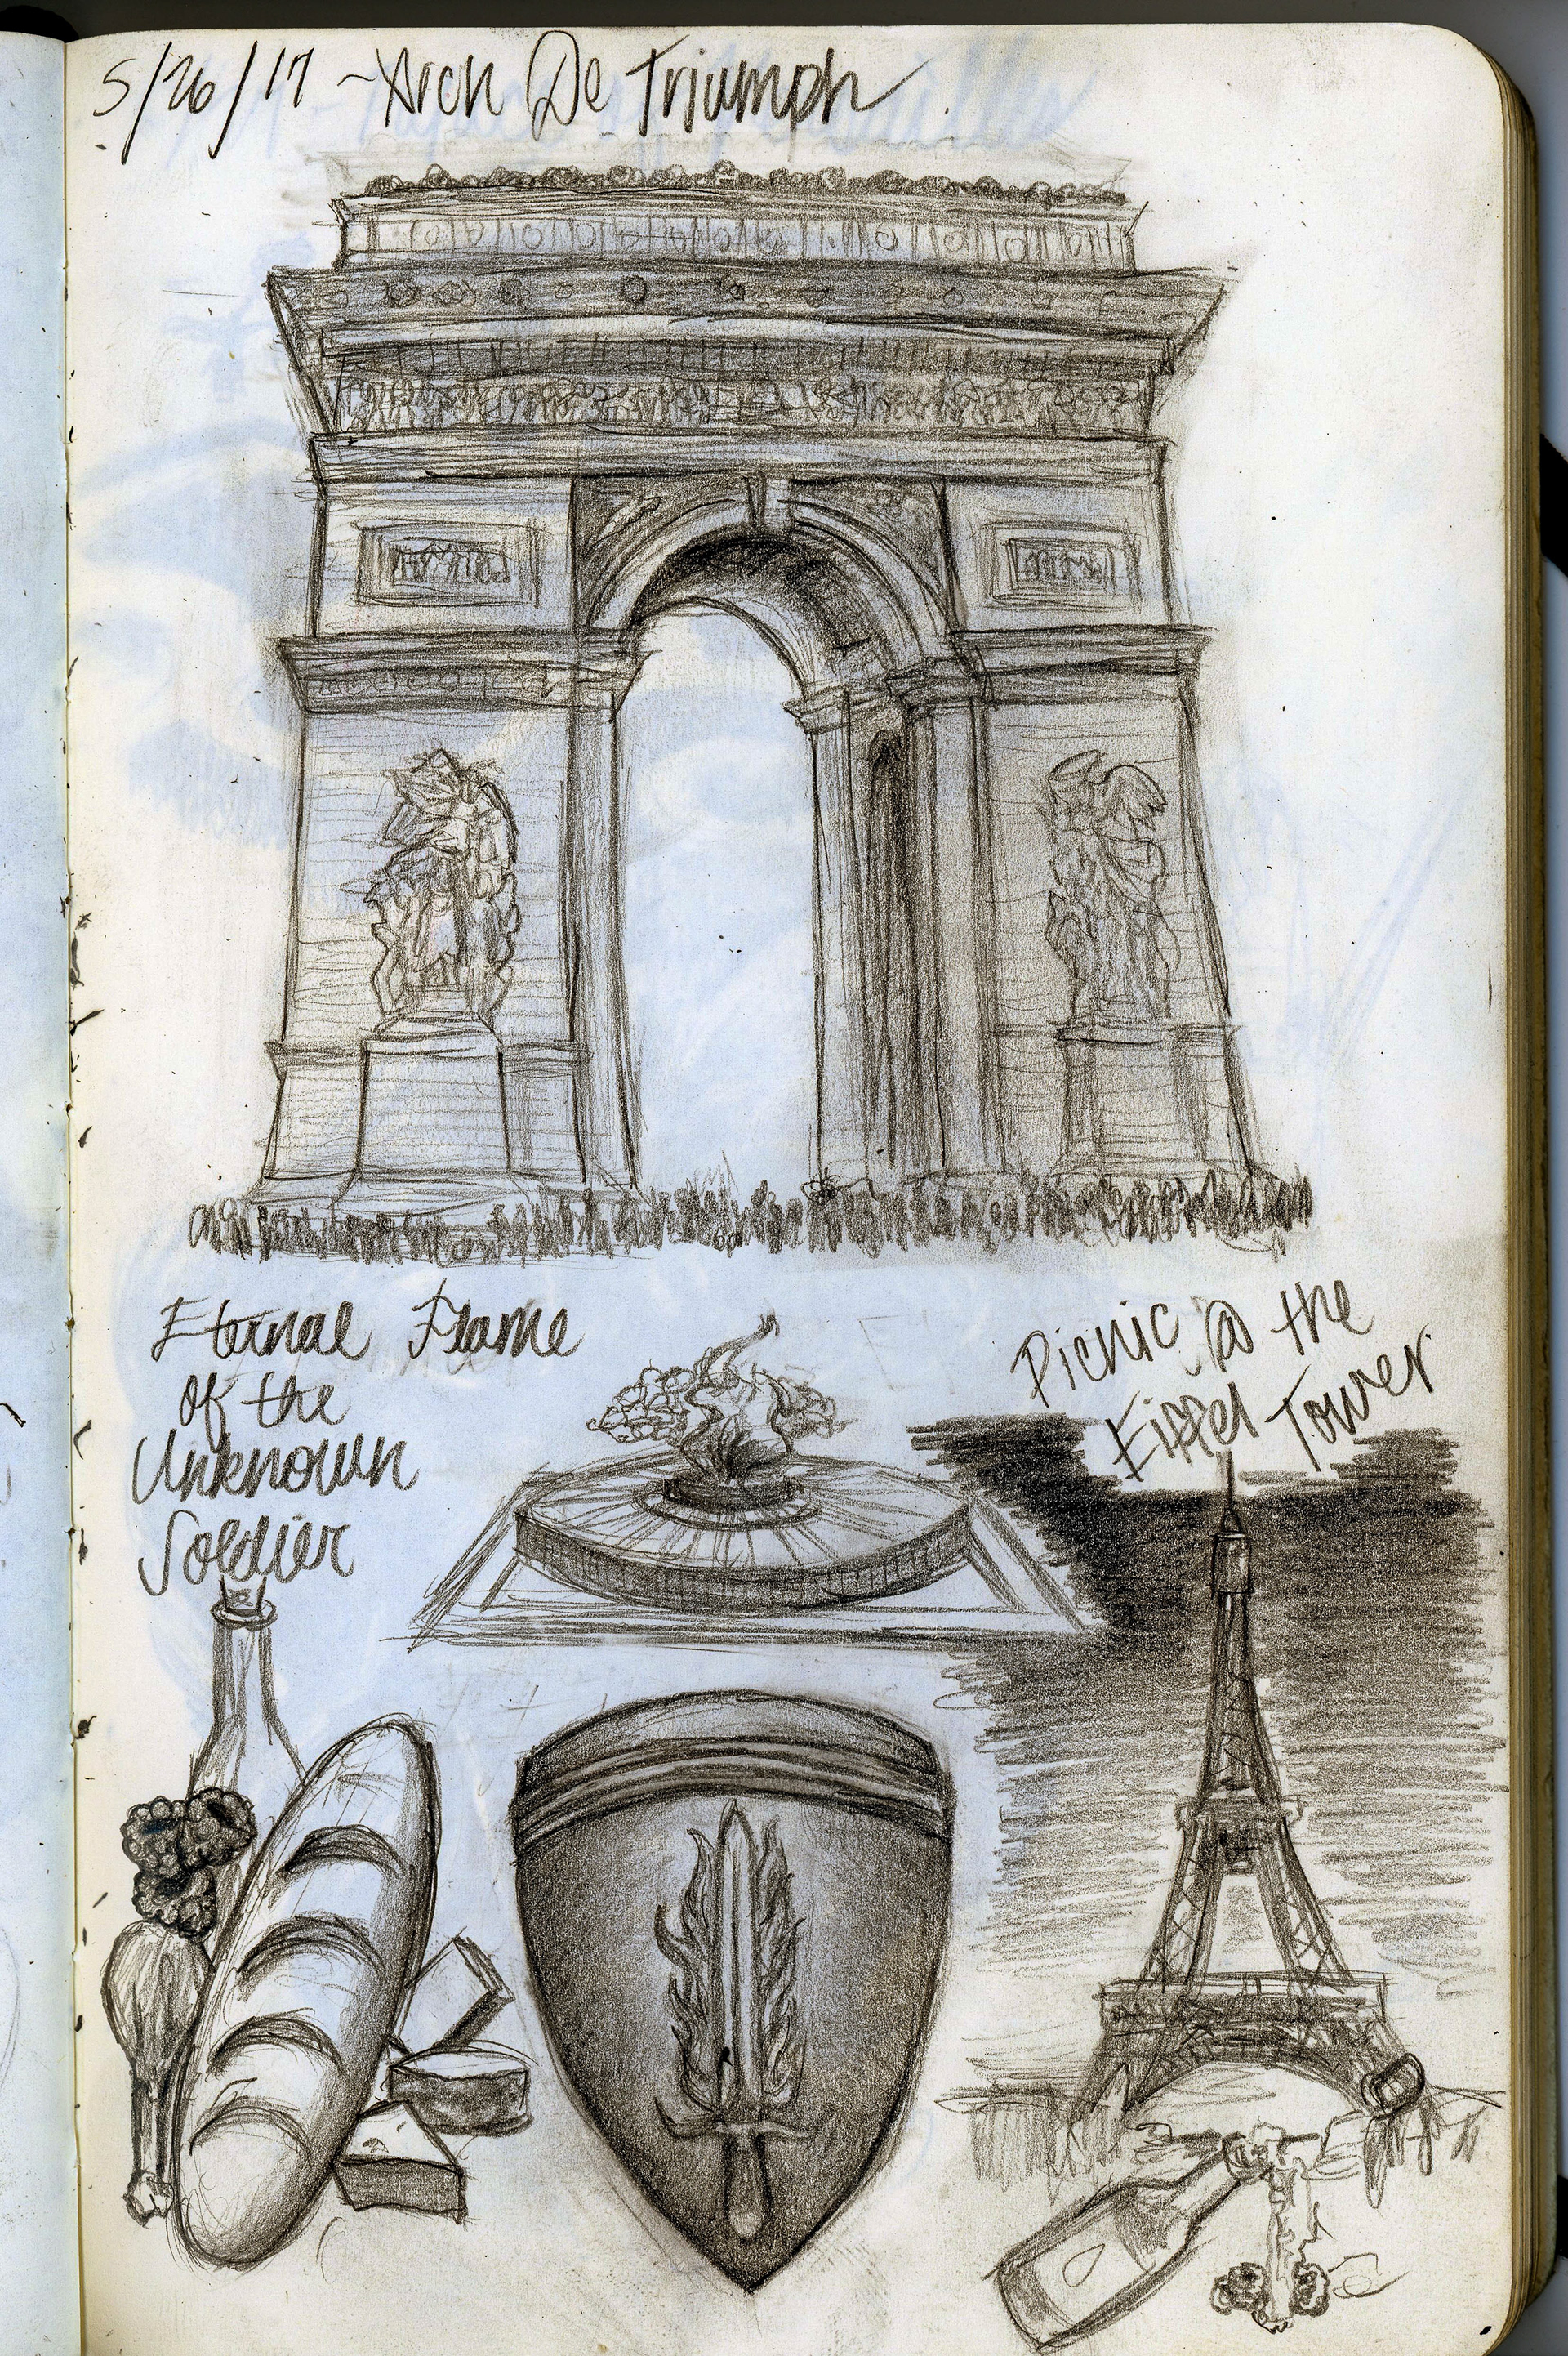 5/26/17 ~ Arch De Triumph
Eternal Flame
of the
Unknown
Soldier
Picnic @ the
Eiffel Tower